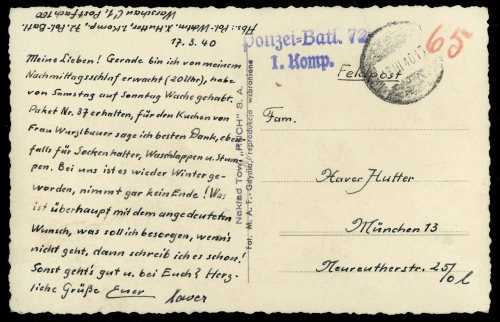 Abs: Pol.-Wehrm. X. Hutter, 1. Komp., 72. Pol.-Batl.
Warschau C 1, Postfach 100
17. 3. 40
Meine Lieben! Gerade bin ich von meinem
Nachmittagsschlaf erwacht (20 Uhr), habe
von Samstag auf Sonntag Wache gehabt.
Paket Nr. 37 erhalten, für den Kuchen von
Frau Wurzbauer sage ich besten Dank, eben
falls für Sockenhalter, Waschlappen u. Stum-
pen. Bei uns ist es wieder Winter ge-
worden, nimmt gar kein Ende! Was
ist überhaupt mit dem angedeuteten
Wunsch, was soll ich besorgen, wenn's
nicht geht, dann schreib ich es schon!
Sonst geht's gut u. bei Euch? Herz-
liche Grüße Euer
Xaver
Nakład Tow. „RUCH" S. A.
fot. M. A. T.-Gdynia/reprodukcja wzbroniona
Polizei=Batl. 72
1. Komp.
65
Feldpost
Fam.
Xaver Hutter
München 13
Neureutherstr. 25/0 l